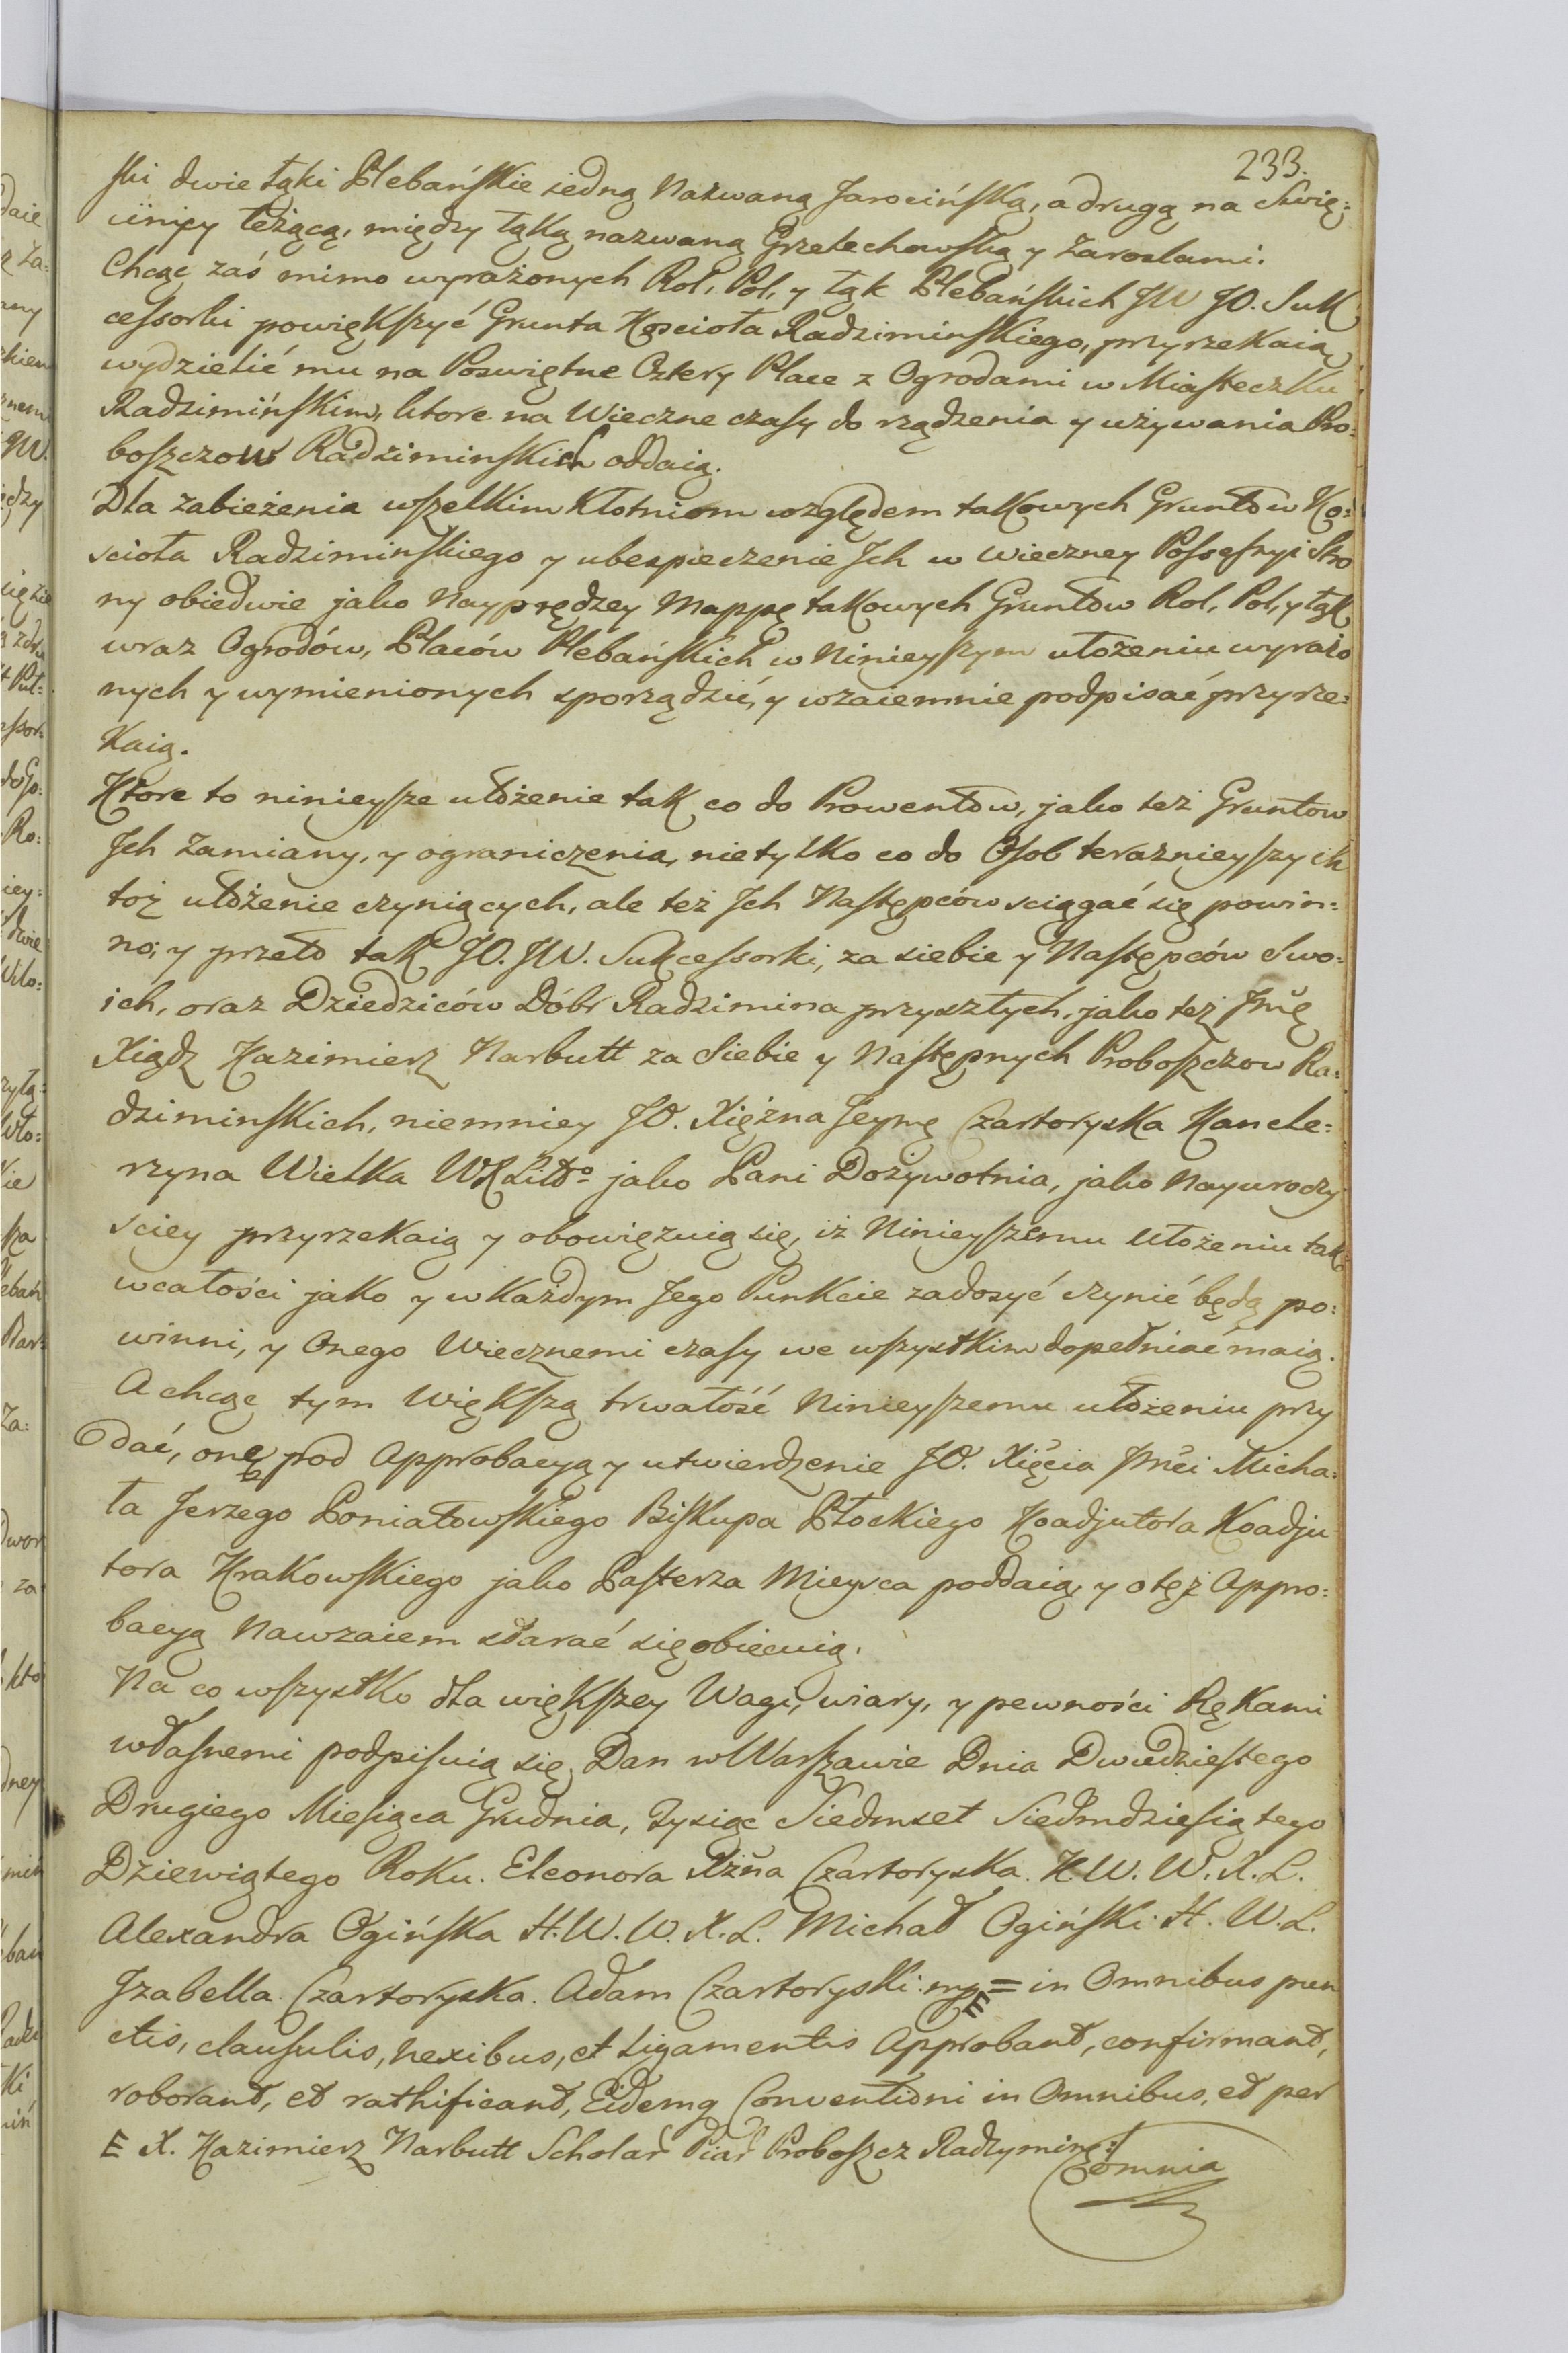 233.
ski dwie łąki Plebańskie iedną Nazwaną Jarocińską, a drugą na Swię:
cinicy leżącą, między łąką nazwaną Grzelechowską y Zaroslami.
Chcąc zaś mimo wyrażonych Rol, Pol, y łąk Plebańskich JW JO. Suk
cessorki powiększyć Grunta Kościoła Radziminskiego, przyrzekaią
wydzielić mu na Poswiętne Cztery Place z Ogrodami w Miasteczku
Radzimińskim, ktore na Wieczne czasy do rządzenia y używania Pro:
boszczow Radziminskich oddaią.
Dla zabieżenia wszelkim Kłotniom względem takowych Gruntow Ko:
scioła Radziminskiego y ubespieczenie Jch w wieczney Possessyi Stro
ny obiedwie jako Nayprędzey Mappę takowych Gruntow Rol, Pol, y łąk
wraz Ogrodów, Placów Plebańskich w Ninieyszym ułożeniu wyrażo
nych y wymienionych sporządzić, y wzaiemnie podpisać przyrze:
kaią.
Ktore to ninieysze ułożenie tak co do Prowentow, jako też Gruntow
Jch Zamiany, y ograniczenia, nietylko co do Osob teraznieyszych
toż ułożenie czyniących, ale też Jch Następców sciągać się powin:
no; y przeto tak JO. JW. Sukcessorki, za siebie y Następców Swo:
ich, oraz Dziedziców Dóbr Radzimina przyszłych, jako też Jmę
Xiądz Kazimierz Narbutt za Siebie y Następnych Proboszczow Ra:
dziminskich, niemniey JO. Xiężna Jeymę Czartoryska Kancle:
rzyna Wielka WX Litto jako Pani Dożywotnia, jako Nayuroczy
sciey przyrzekaią y obowięzuią się, iż Ninieyszemu Ułożeniu tak
wcałości jako y w każdym Jego Punkcie zadosyć czynić będą po:
winni, y Onego Wiecznemi czasy we wszystkim dopełniać maią.
A chcąc tym Większą trwałość Ninieyszemu ułożeniu przy
dać, one pod Approbacyą y utwierdzenie JO. Xięcia Jmci Micha:
ła Jerzego Poniatowskiego Biskupa Płockiego Koadjutora Koadju
tora Krakowskiego jako Pasterza Mieysca poddaią, y otęż Appro:
bacyą Nawzaiem starać się obiecuią.
Na co wszystko dla większey Wagi, wiary, y pewności Rękami
własnemi podpisuią się, Dan w Warszawie Dnia Dwudziestego
Drugiego Miesiąca Grudnia, Tysiąc Siedmset Siedmdziesiątego
Dziewiątego Roku. Eleonora Xżna Czartoryska. K. W. W. X. L.
Alexandra Ogińska H. W. W. X. L. Michał Ogiński H. W. L.
Jzabella Czartoryska. Adam Czartoryski: mp E = in Omnibus pun
ctis, clausulis, nexibus, et Ligamentis Approbant, confirmant,
roborant, et rathificant, Eidemq Conventioni in Omnibus, et per
E X. Kazimierz Narbutt Scholar Piar Proboszcz Radzymins:
Comnia